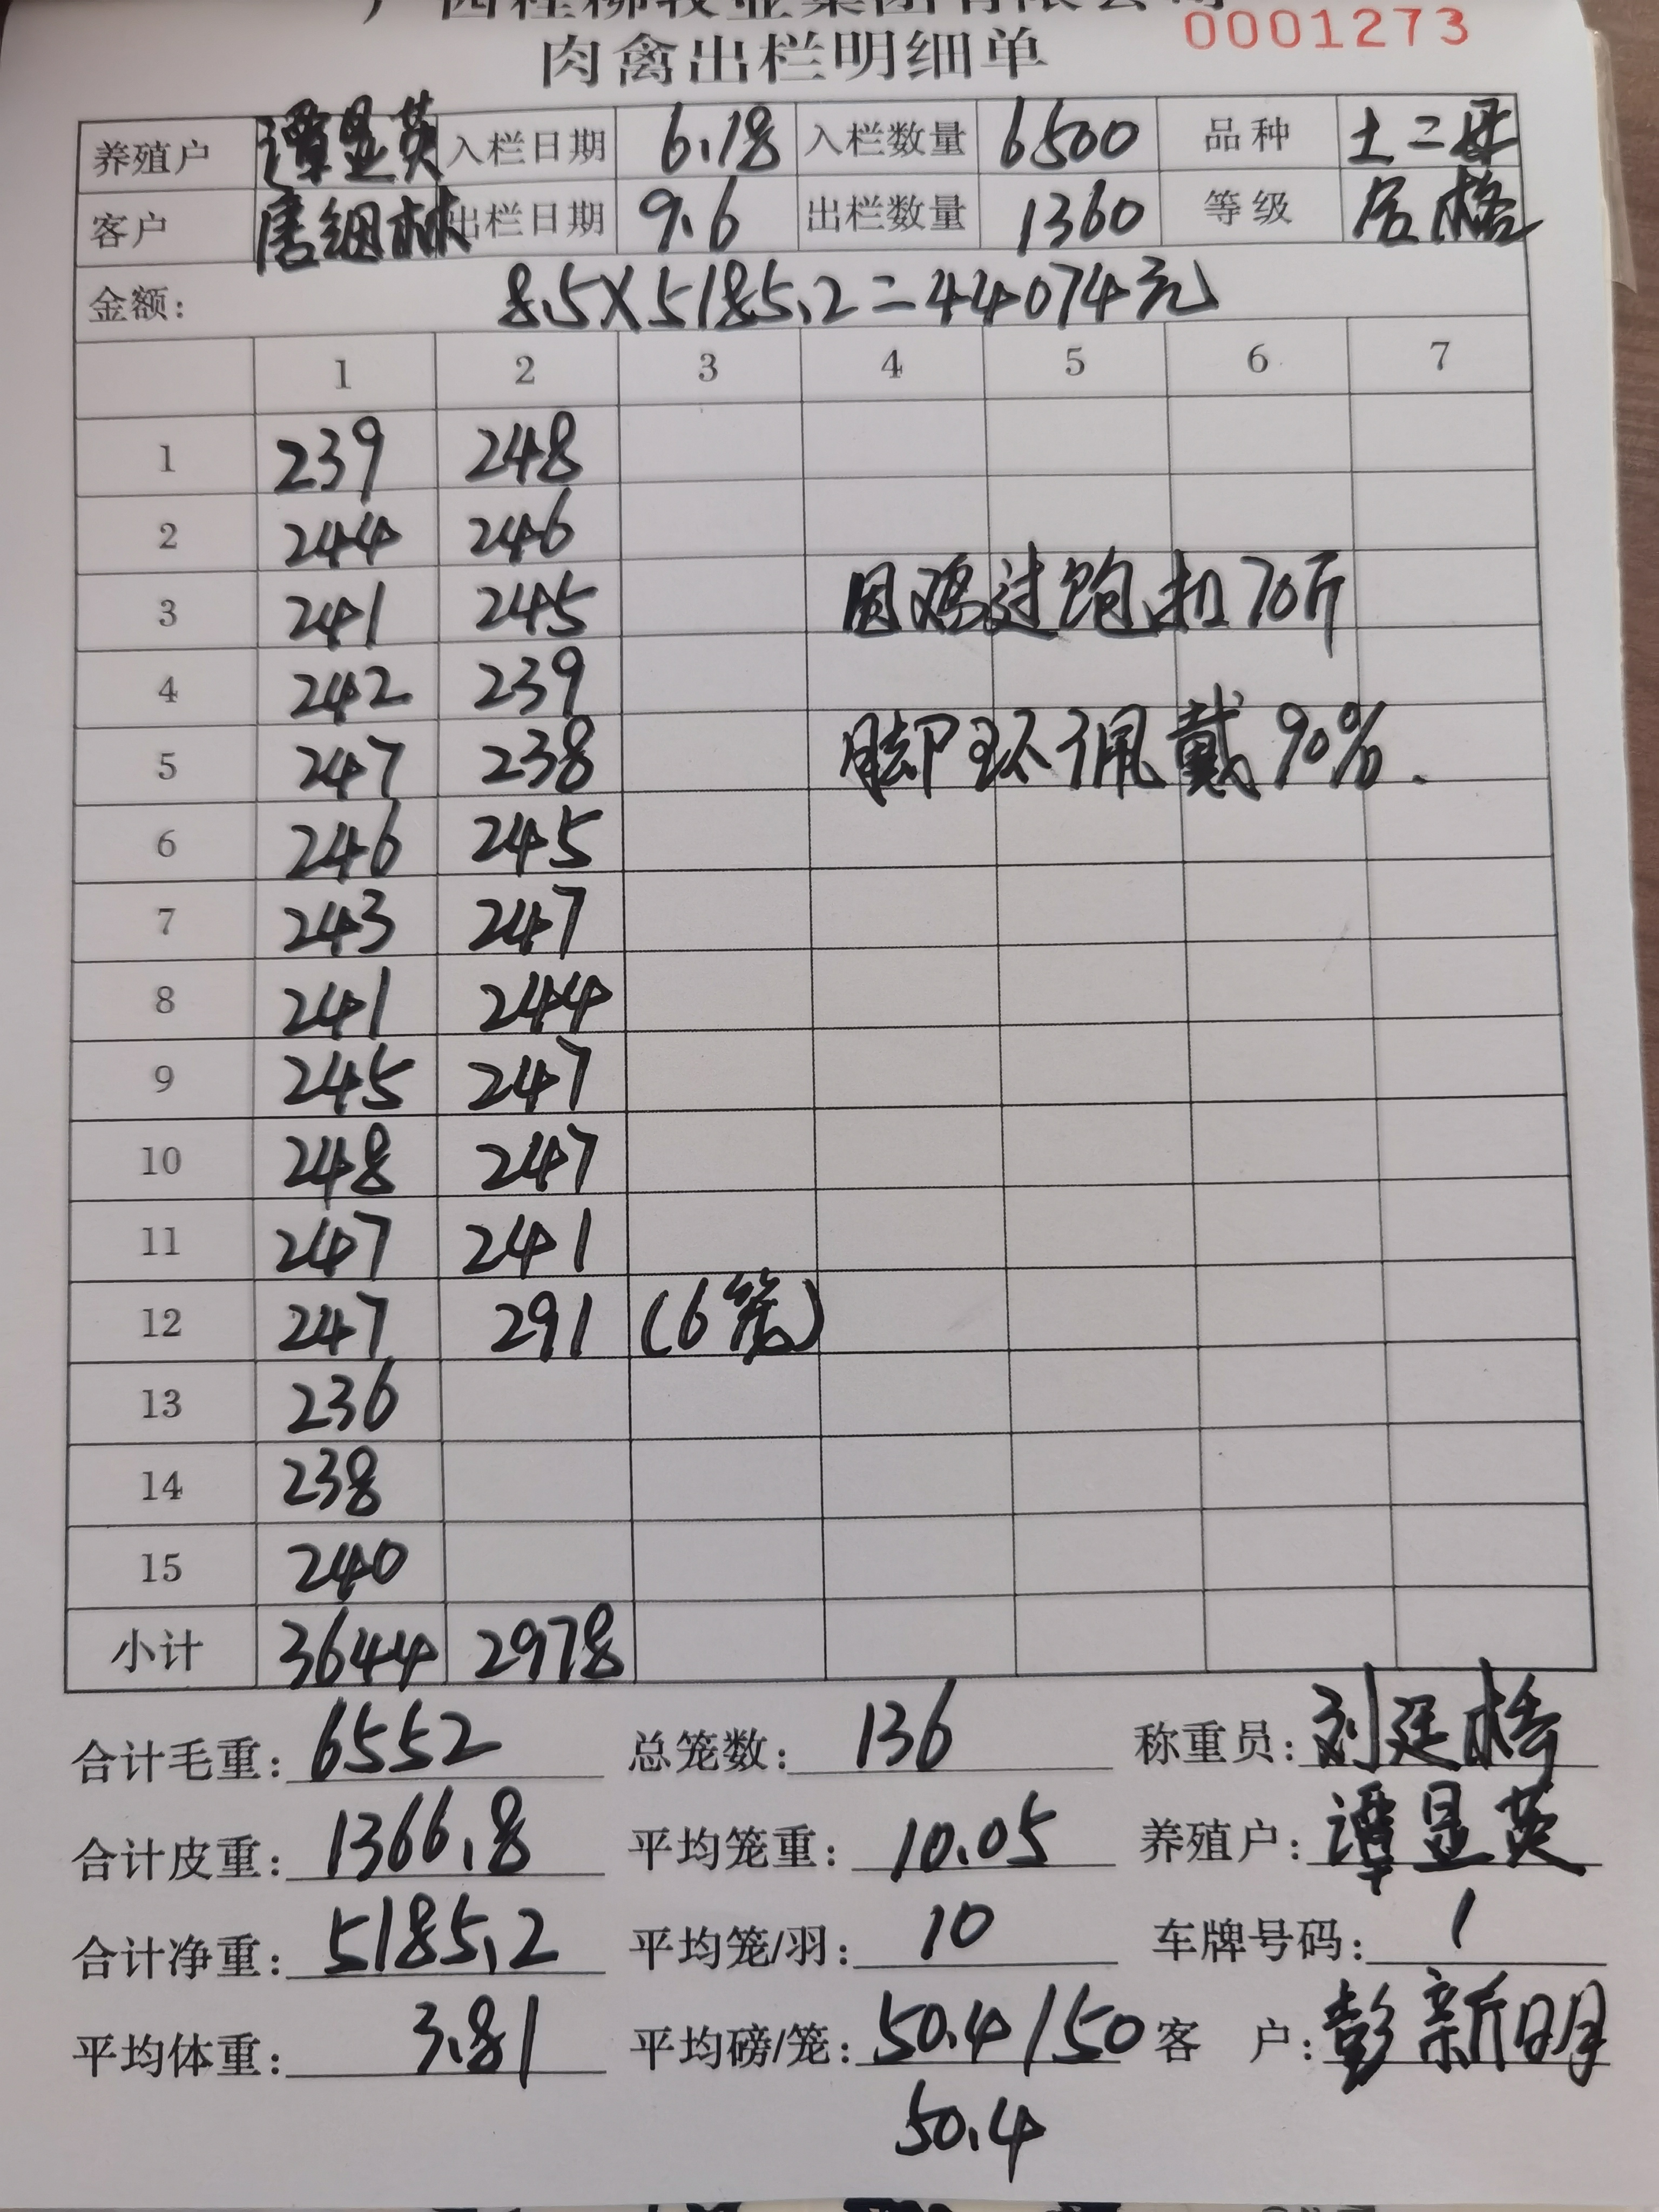 广西桂柳牧业集团有限公司
肉禽出栏明细单 0001273
养殖户 谭显英 入栏日期 6.18 入栏数量 6500 品种 土二母
客户 唐细林 出栏日期 9.6 出栏数量 1360 等级 合格
金额: 8.5×5185.2=44074元
1 2 3 4 5 6 7
1 239 248
2 244 246
3 241 245 因鸡过饱扣70斤
4 242 239
5 247 238 脚环佩戴90%.
6 246 245
7 243 247
8 241 244
9 245 247
10 248 247
11 247 241
12 247 291 (6笼)
13 236
14 238
15 240
小计 3644 2978
合计毛重: 6552 总笼数: 136 称重员: 刘廷
合计皮重: 1366.8 平均笼重: 10.05 养殖户: 谭显英
合计净重: 5185.2 平均笼/羽: 10 车牌号码: 1
平均体重: 3.81 平均磅/笼: 50.4/50 客 户: 彭新明
50.4